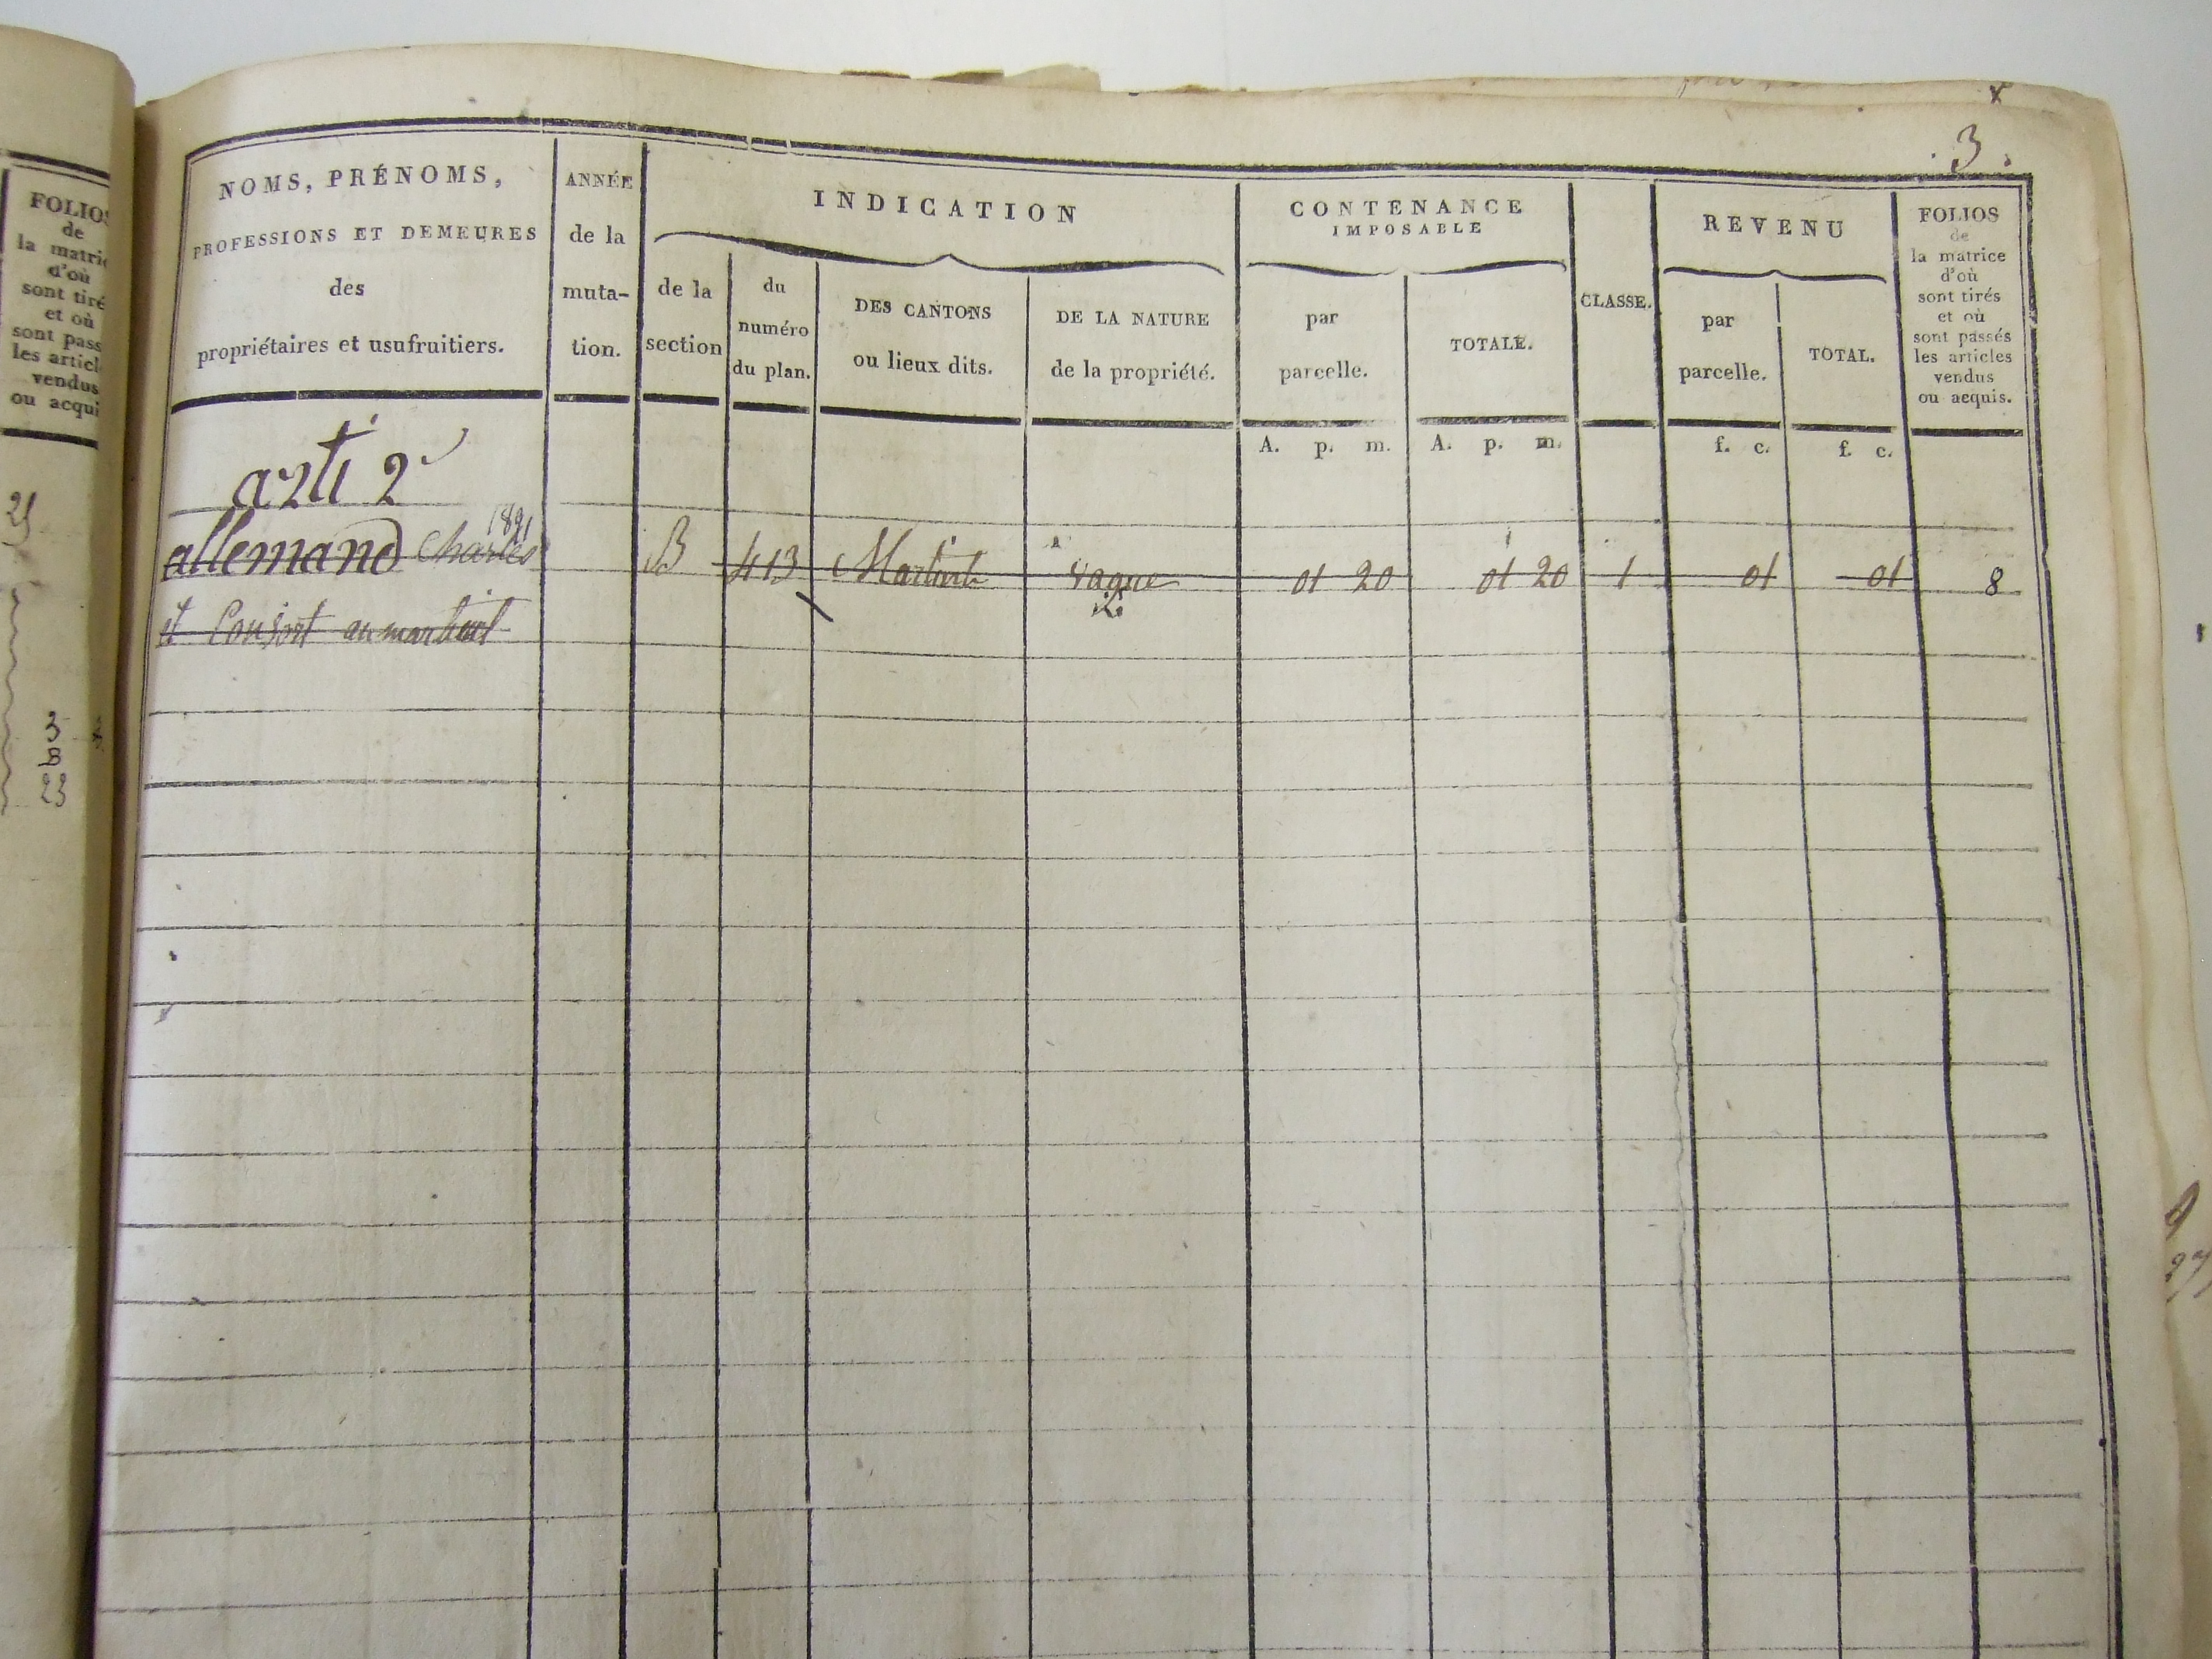 3
NOMS, PRÉNOMS,
PROFESSIONS ET DEMEURES
des
propriétaires et usufruitiers.
ANNÉE
de la
muta-
tion.
INDICATION
de la
section
du
numéro
du plan.
DES CANTONS
ou lieux dits.
DE LA NATURE
de la propriété.
CONTENANCE
IMPOSABLE
par
parcelle.
TOTALE.
CLASSE.
REVENU
par
parcelle.
TOTAL.
FOLIOS
de
la matrice
d'où
sont tirés
et où
sont passés
les articles
vendus
ou acquis.
A. p. m. A. p. m. f. c. f. c.
arti 2
allemand Charles B 413 vague 01 20 01 20 1 01 01 8
et Consort au
FOLIOS
de
la matric
d'où
sont tiré
et où
sont pass
les articl
vendus
ou acqui
3
B
23